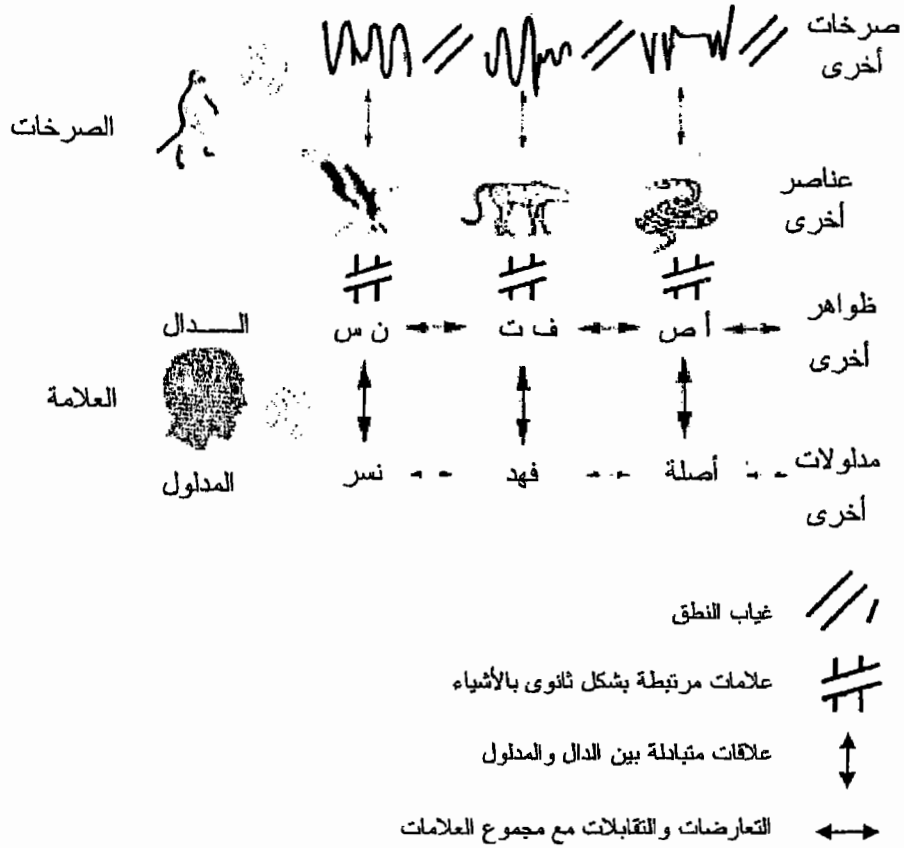 صرخات
أخرى
الصرخات
عناصر
أخرى
ظواهر
أخرى
أ ص
ف ت
ن س
الـــدال
العلامة
مدلولات
أخرى
أصلة
فهد
نسر
المدلول
غياب النطق
علامات مرتبطة بشكل ثانوى بالأشياء
علاقات متبادلة بين الدال والمدلول
التعارضات والتقابلات مع مجموع العلامات